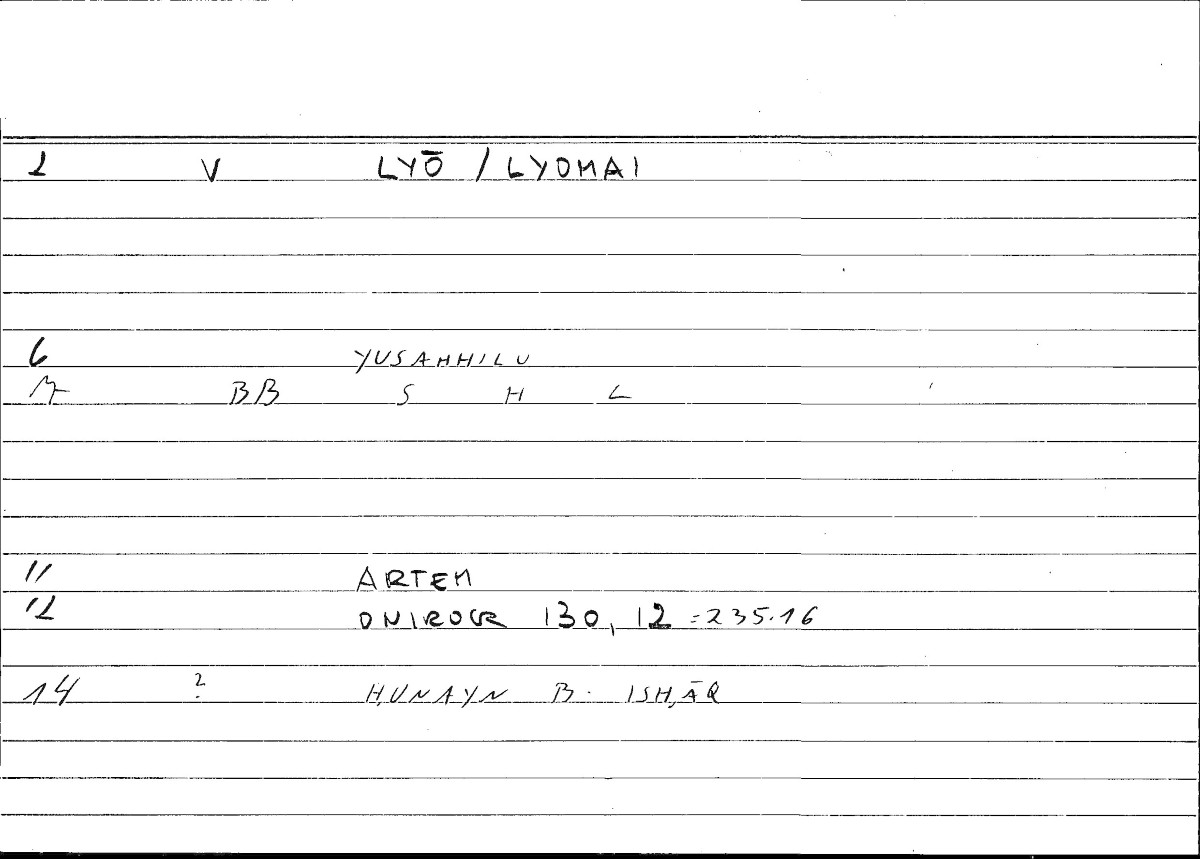 1 V LYŌ / LYOMAI
6 YUSAHHILU
7 BB S H L
11 ARTEM
12 ONIROCR 130, 12 = 235.16
14 ? ḤUNAYN B. ISḤĀQ